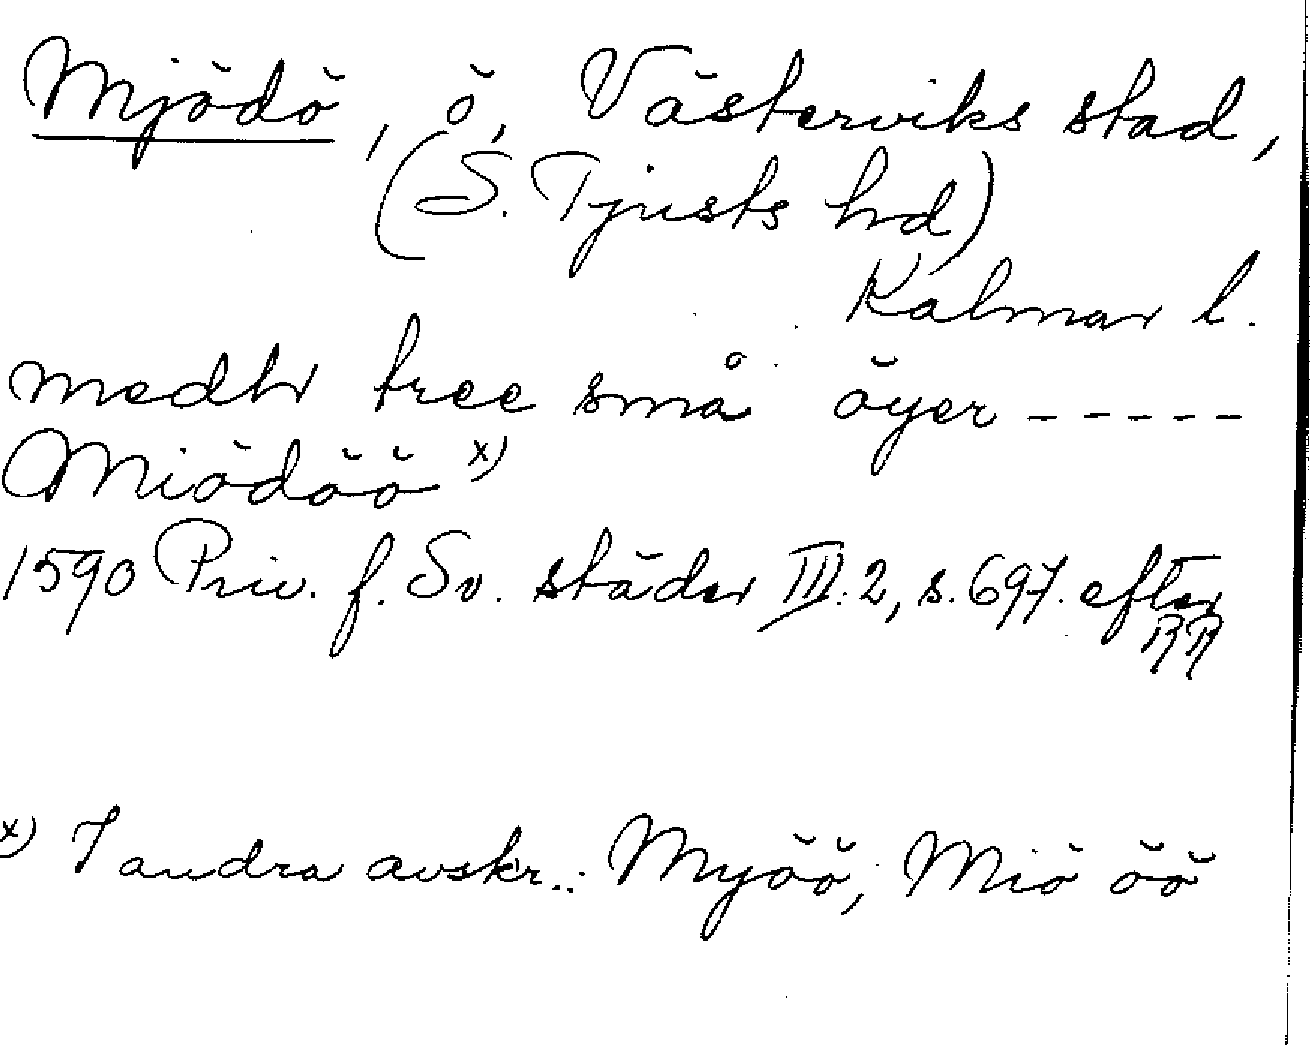 Mjödö, ö, Västerviks stad,
(S. Tjusts hd)
Kalmar l.
medhr tree små öyer -----
Miödöö x)
1590 Priv. f. Sv. städer III:2, s. 697. efter
RR
x) I andra avskr.: Myöö; Miö öö